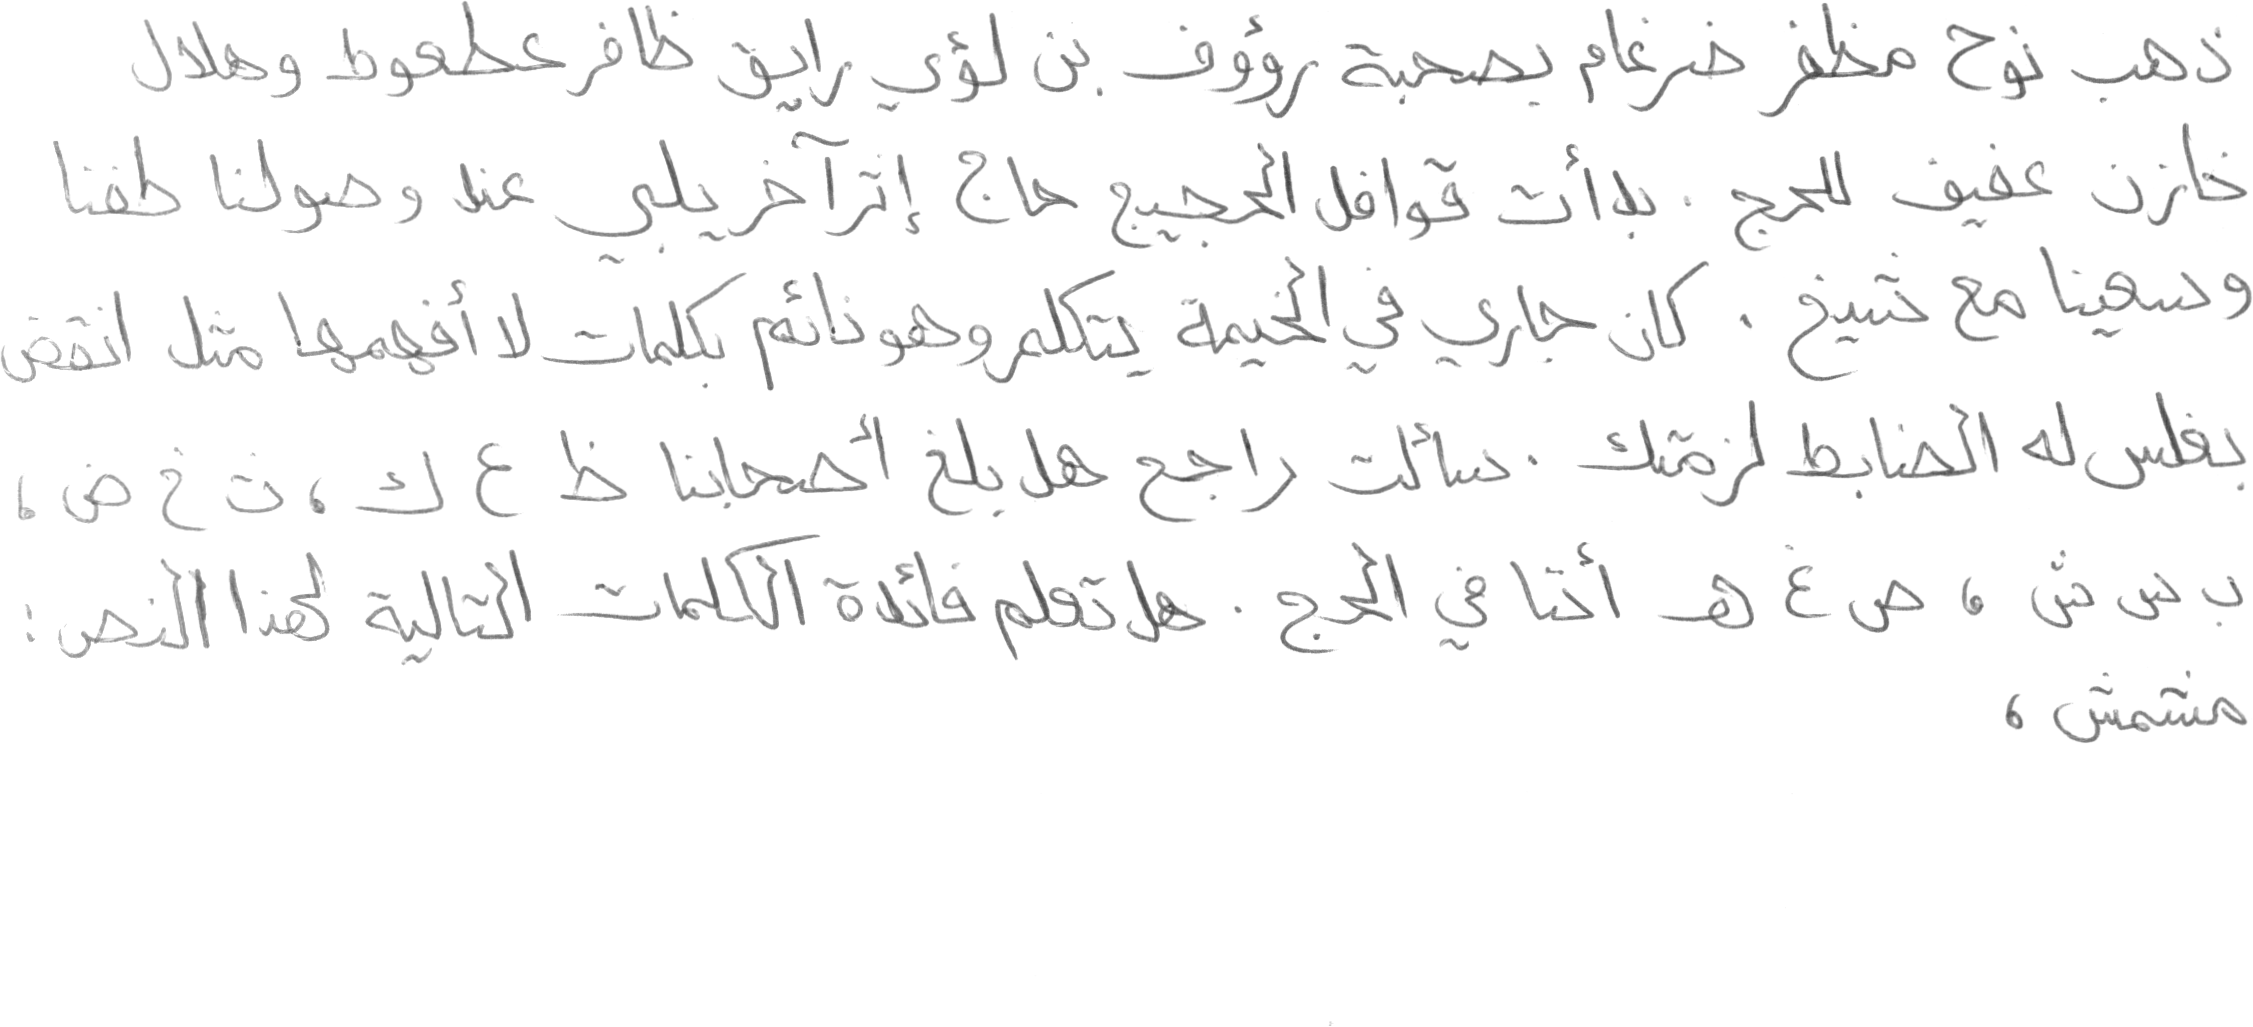 ذهب نوح مظفر ضرغام بصحبة رؤوف بن لؤي رايق ظافر عطعوط وهلال
خازن عفيف للحج . بدأت قوافل الحجيج حاج إثر آخر يلبي عند وصولنا طفنا
وسعينا مع شيخ . كان جاري في الخيمة يتكلم وهو نائم بكلمات لا أفهمها مثل انقض
بغلس له الضابط لزمتك . سألت راجح هل بلغ أصحابنا ظ ع ك ، ث خ ض ،
ب س ش ، ص غ هـ أننا في الحج . هل تعلم فائدة الكلمات التالية لهذا النص :
مشمش ،